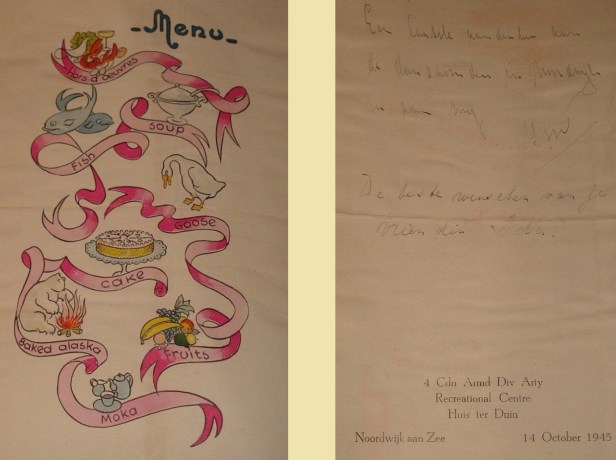 Menu
Hors d'oeuvres
soup
Fish
Goose
cake
Baked alaska
Fruits
Moka
Een laatste aan
de
en
De beste wenschen van je
vriendin
4 Cdn Armd Div Arty
Recreational Centre
Huis ter Duin
Noordwijk aan Zee 14 October 1945